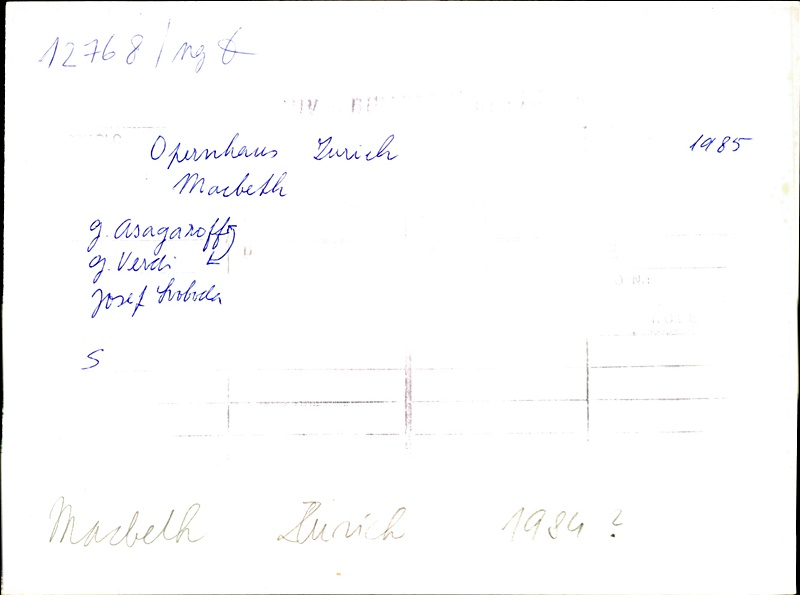 12768/ng
Opernhaus Zurich 1985
Macbeth
G. Asagaroff
G. Verdi
Josef Svoboda
S
Macbeth Zurich 1984?